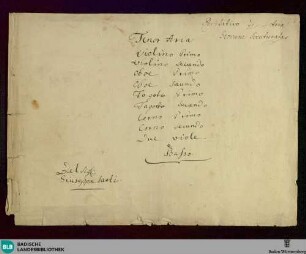 Tenor Aria
Violino Primo
Violino secondo
Oboe Primo
Oboe secundo
Fagotto Primo
Fagotto secundo
Corno Primo
Corno secundo
Due Viole
Basso
Del Sigr
Giuseppe Sarti
BLB
BADISCHE
LANDESBIBLIOTHEK
Baden-Württemberg